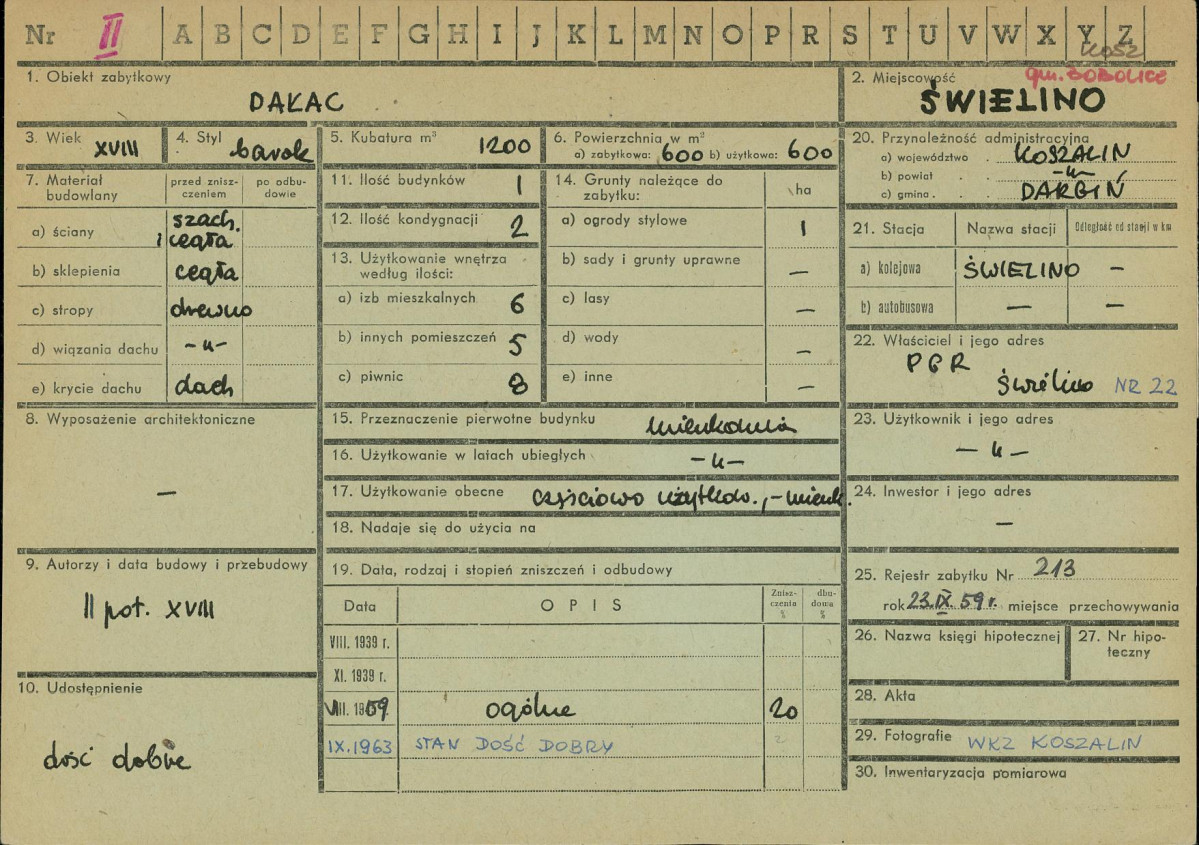 Nr II A B C D E F G H I J K L M N O P R S T U V W X Y Z
KOSZ
gm. BOBOLICE
1. Obiekt zabytkowy
PAŁAC
2. Miejscowość
ŚWIELINO
3. Wiek XVIII
4. Styl barok
5. Kubatura m³ 1200
6. Powierzchnia w m²
a) zabytkowa: 600 b) użytkowa: 600
20. Przynależność administracyjna
a) województwo . KOSZALIN
b) powiat . . -"-
c) gmina . . DARGIŃ
7. Materiał budowlany
przed zniszczeniem
po odbudowie
a) ściany szach. i cegła
b) sklepienia cegła
c) stropy drewno
d) wiązania dachu -"-
e) krycie dachu dach
11. Ilość budynków 1
12. Ilość kondygnacji 2
13. Użytkowanie wnętrza
według ilości:
a) izb mieszkalnych 6
b) innych pomieszczeń 5
c) piwnic 8
14. Grunty należące do
zabytku: ha
a) ogrody stylowe 1
b) sady i grunty uprawne —
c) lasy —
d) wody —
e) inne —
21. Stacja Nazwa stacji Odległość od stacji w km
a) kolejowa ŚWIELINO —
b) autobusowa — —
22. Właściciel i jego adres
PGR
Świelino NR 22
8. Wyposażenie architektoniczne
—
15. Przeznaczenie pierwotne budynku mieszkalnia
16. Użytkowanie w latach ubiegłych -"-
17. Użytkowanie obecne częściowo użytkow., - mieszk.
18. Nadaje się do użycia na
23. Użytkownik i jego adres
-"-
24. Inwestor i jego adres
—
9. Autorzy i data budowy i przebudowy
II poł. XVIII
19. Data, rodzaj i stopień zniszczeń i odbudowy
Data OPIS Zniszczenia % dbudowa %
VIII. 1939 r.
XI. 1939 r.
VIII. 1959 ogólne 20
IX.1963 STAN DOŚĆ DOBRY
25. Rejestr zabytku Nr 213
rok 23.IX.59 r. miejsce przechowywania
26. Nazwa księgi hipotecznej
27. Nr hipoteczny
10. Udostępnienie
dość dobre
28. Akta
29. Fotografie WKZ KOSZALIN
30. Inwentaryzacja pomiarowa